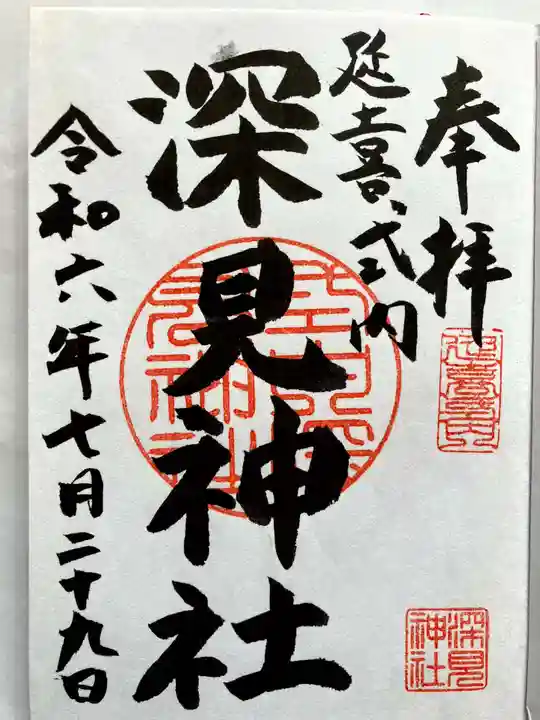 奉拝
延喜式内
深見神社
令和六年七月二十九日
延喜式内
深見
神社